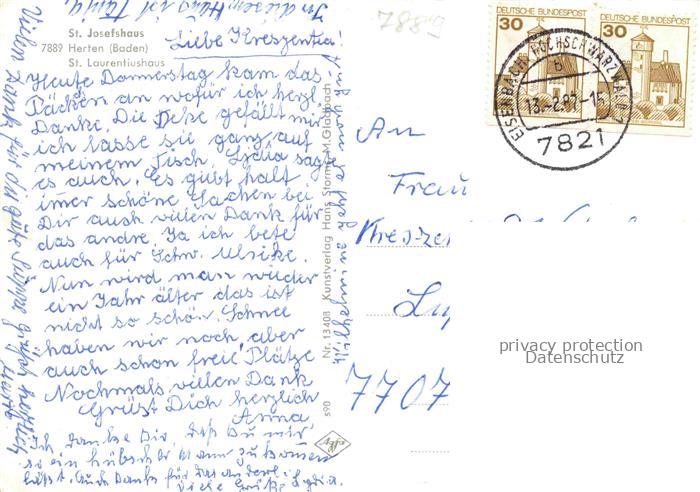 In diesem Haus ist Tanja
St. Josefshaus
7889 Herten (Baden)
St. Laurentiushaus
7889
Liebe Kreszentia!
Heute Donnerstag kam das
Päcken an wofür ich herzl.
Danke. Die Deke gefällt mir
ich lasse sie ganz auf
meinem Tisch. Lydia sagte
es auch. Es gibt halt
imer schöne Sachen bei
Dir auch vielen Dank für
das andre. Ja ich bete
auch für Schw. Ulrike.
Nun wird man wieder
ein Jahr älter das ist
nicht so schön. Schnee
haben wir noch, aber
auch schon freie Plätze
Nochmals vielen Dank
Grüst Dich herzlich
Anna
Ich danke Dir, daß Du mir
so ein hübsches
läßt. Auch Danke für das andere! Lydia.
Viele Grüße
Vielen Dank für die gute Suppe grüßt herzlich
Nr. 13408 Kunstverlag Hans Storms, M.Gladbach
s90
Agfa
DEUTSCHE BUNDESPOST
30
DEUTSCHE BUNDESPOST
30
EISENBACH, HOCHSCHWARZWALD
b
13.-2.87-15
7821
An
Frau
7707
privacy protection
Datenschutz